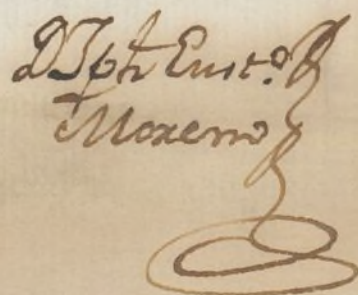 Dn Jph Eust.o
Moreno